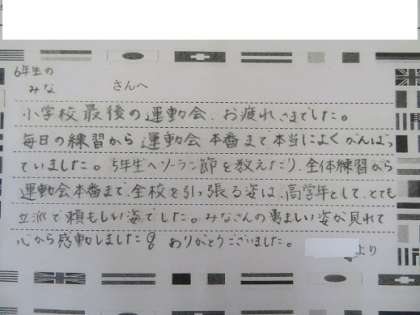 6年生の
みな さんへ
小学校最後の運動会、お疲れさまでした。
毎日の練習から運動会本番まで本当によくがんばっ
ていました。5年生へソーラン節を教えたり、全体練習から
運動会本番まで、全校を引っ張る姿は、高学年として、とても
立派で頼もしい姿でした。みなさんの勇ましい姿が見れて
心から感動しました。ありがとうございました。
より